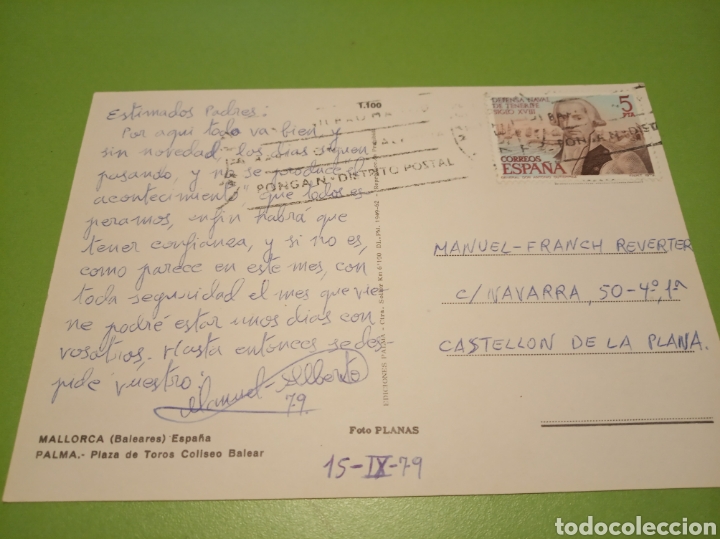 T.100
Estimados Padres:
Por aqui todo va bien y
sin novedad, los dias siguen
pasando, y no se produce el
acontecimiento", que todos es
peramos, enfin habrá que
tener confianza, y si no es,
como parece en este mes, con
toda seguridad el mes que vie
ne podré estar unos dias con
vosotros. Hasta entonces se des-
pide vuestro:
Manuel-Alberto
79.
MALLORCA (Baleares) España
PALMA.- Plaza de Toros Coliseo Balear
PONGA N.º DISTRITO POSTAL
EDICIONES PALMA
Foto PLANAS
15-IX-79
DEFENSA NAVAL
DE TENERIFE
SIGLO XVIII
5
PTA
CORREOS
ESPAÑA
PONGA N.º DIST
MANUEL-FRANCH REVERTER
C/ NAVARRA, 50-4º, 1ª
CASTELLON DE LA PLANA.
todocoleccion